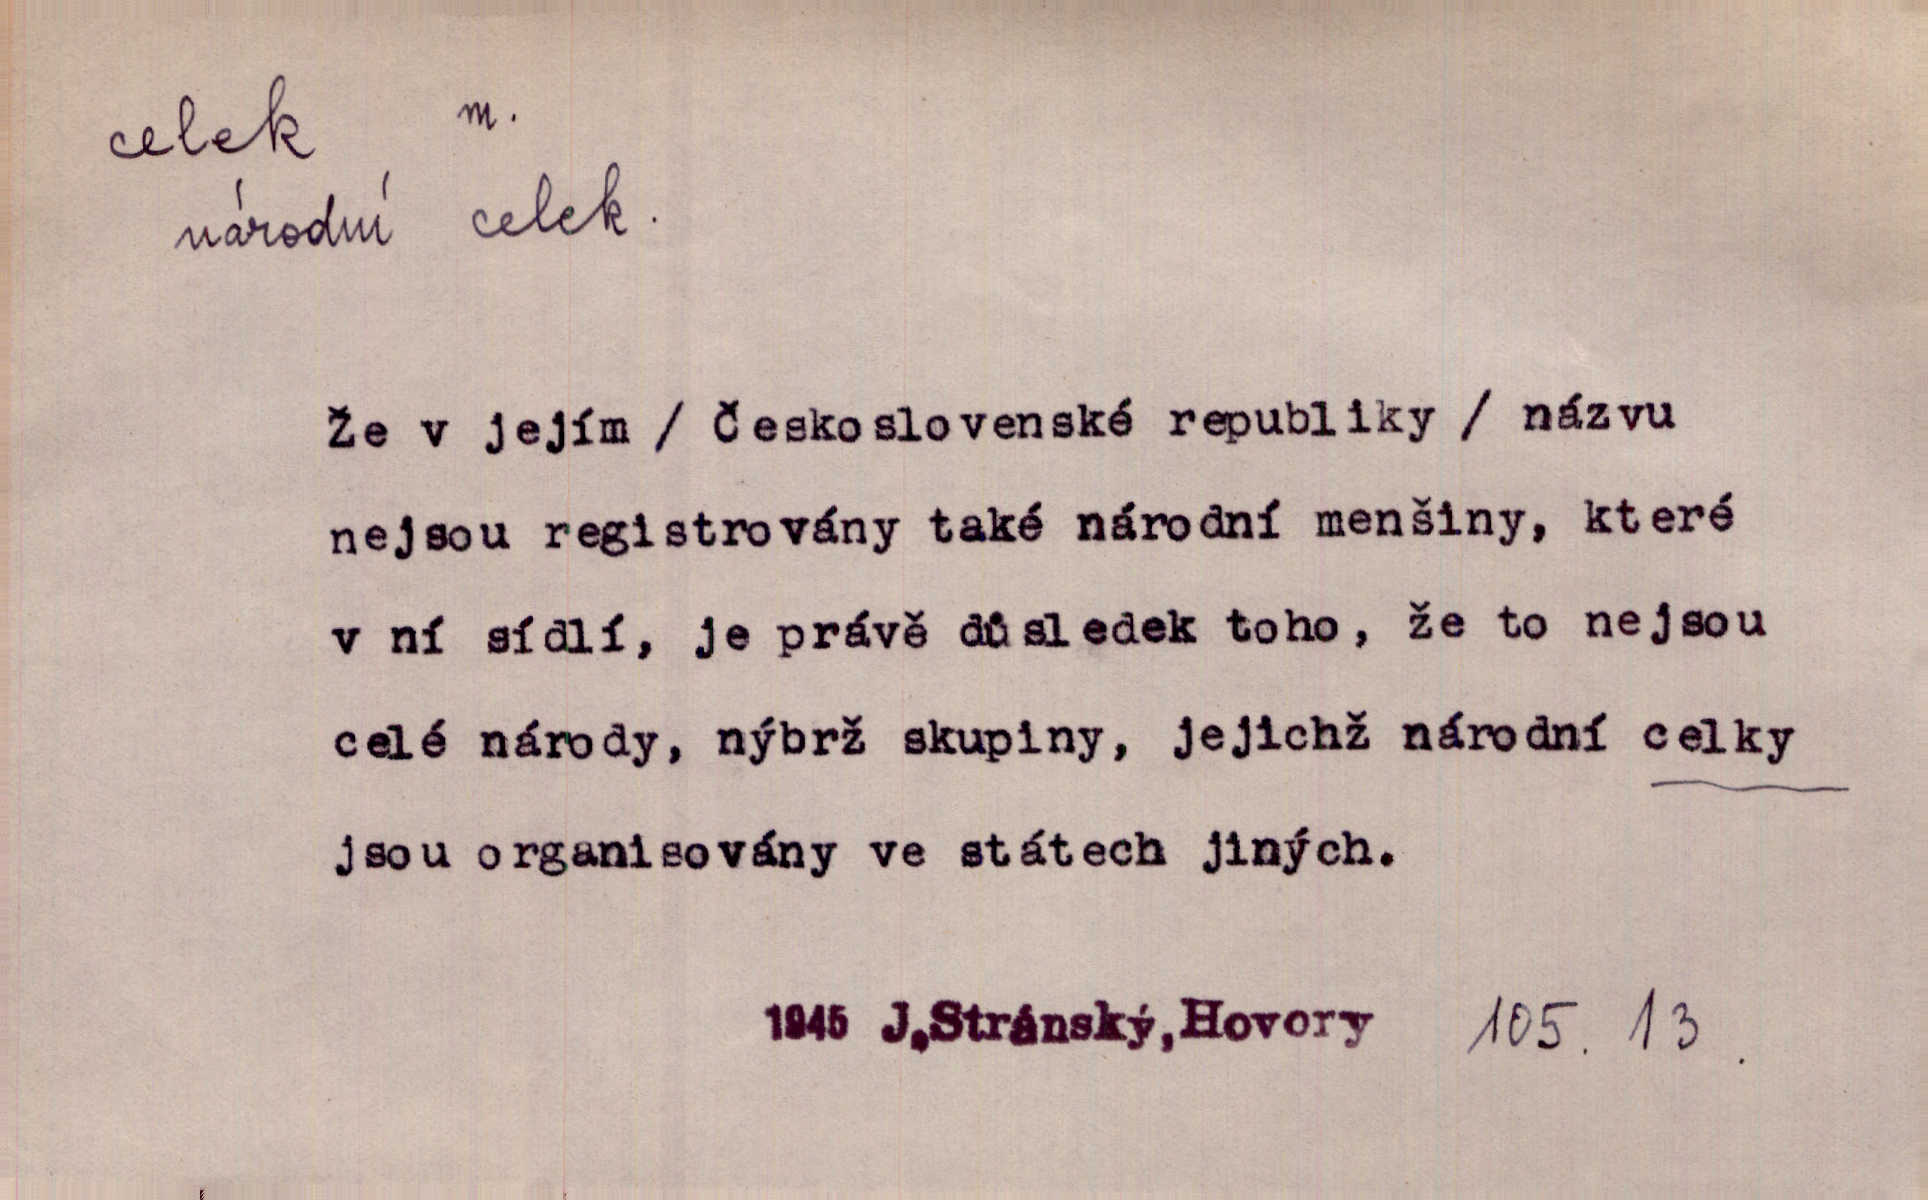 celek m.
národní celek.
Že v jejím / Československé republiky / názvu
nejsou registrovány také národní menšiny, které
v ní sídlí, je právě důsledek toho, že to nejsou
celé národy, nýbrž skupiny, jejichž národní celky
jsou organisovány ve státech jiných.
1945 J.Stránský, Hovory 105. 13.